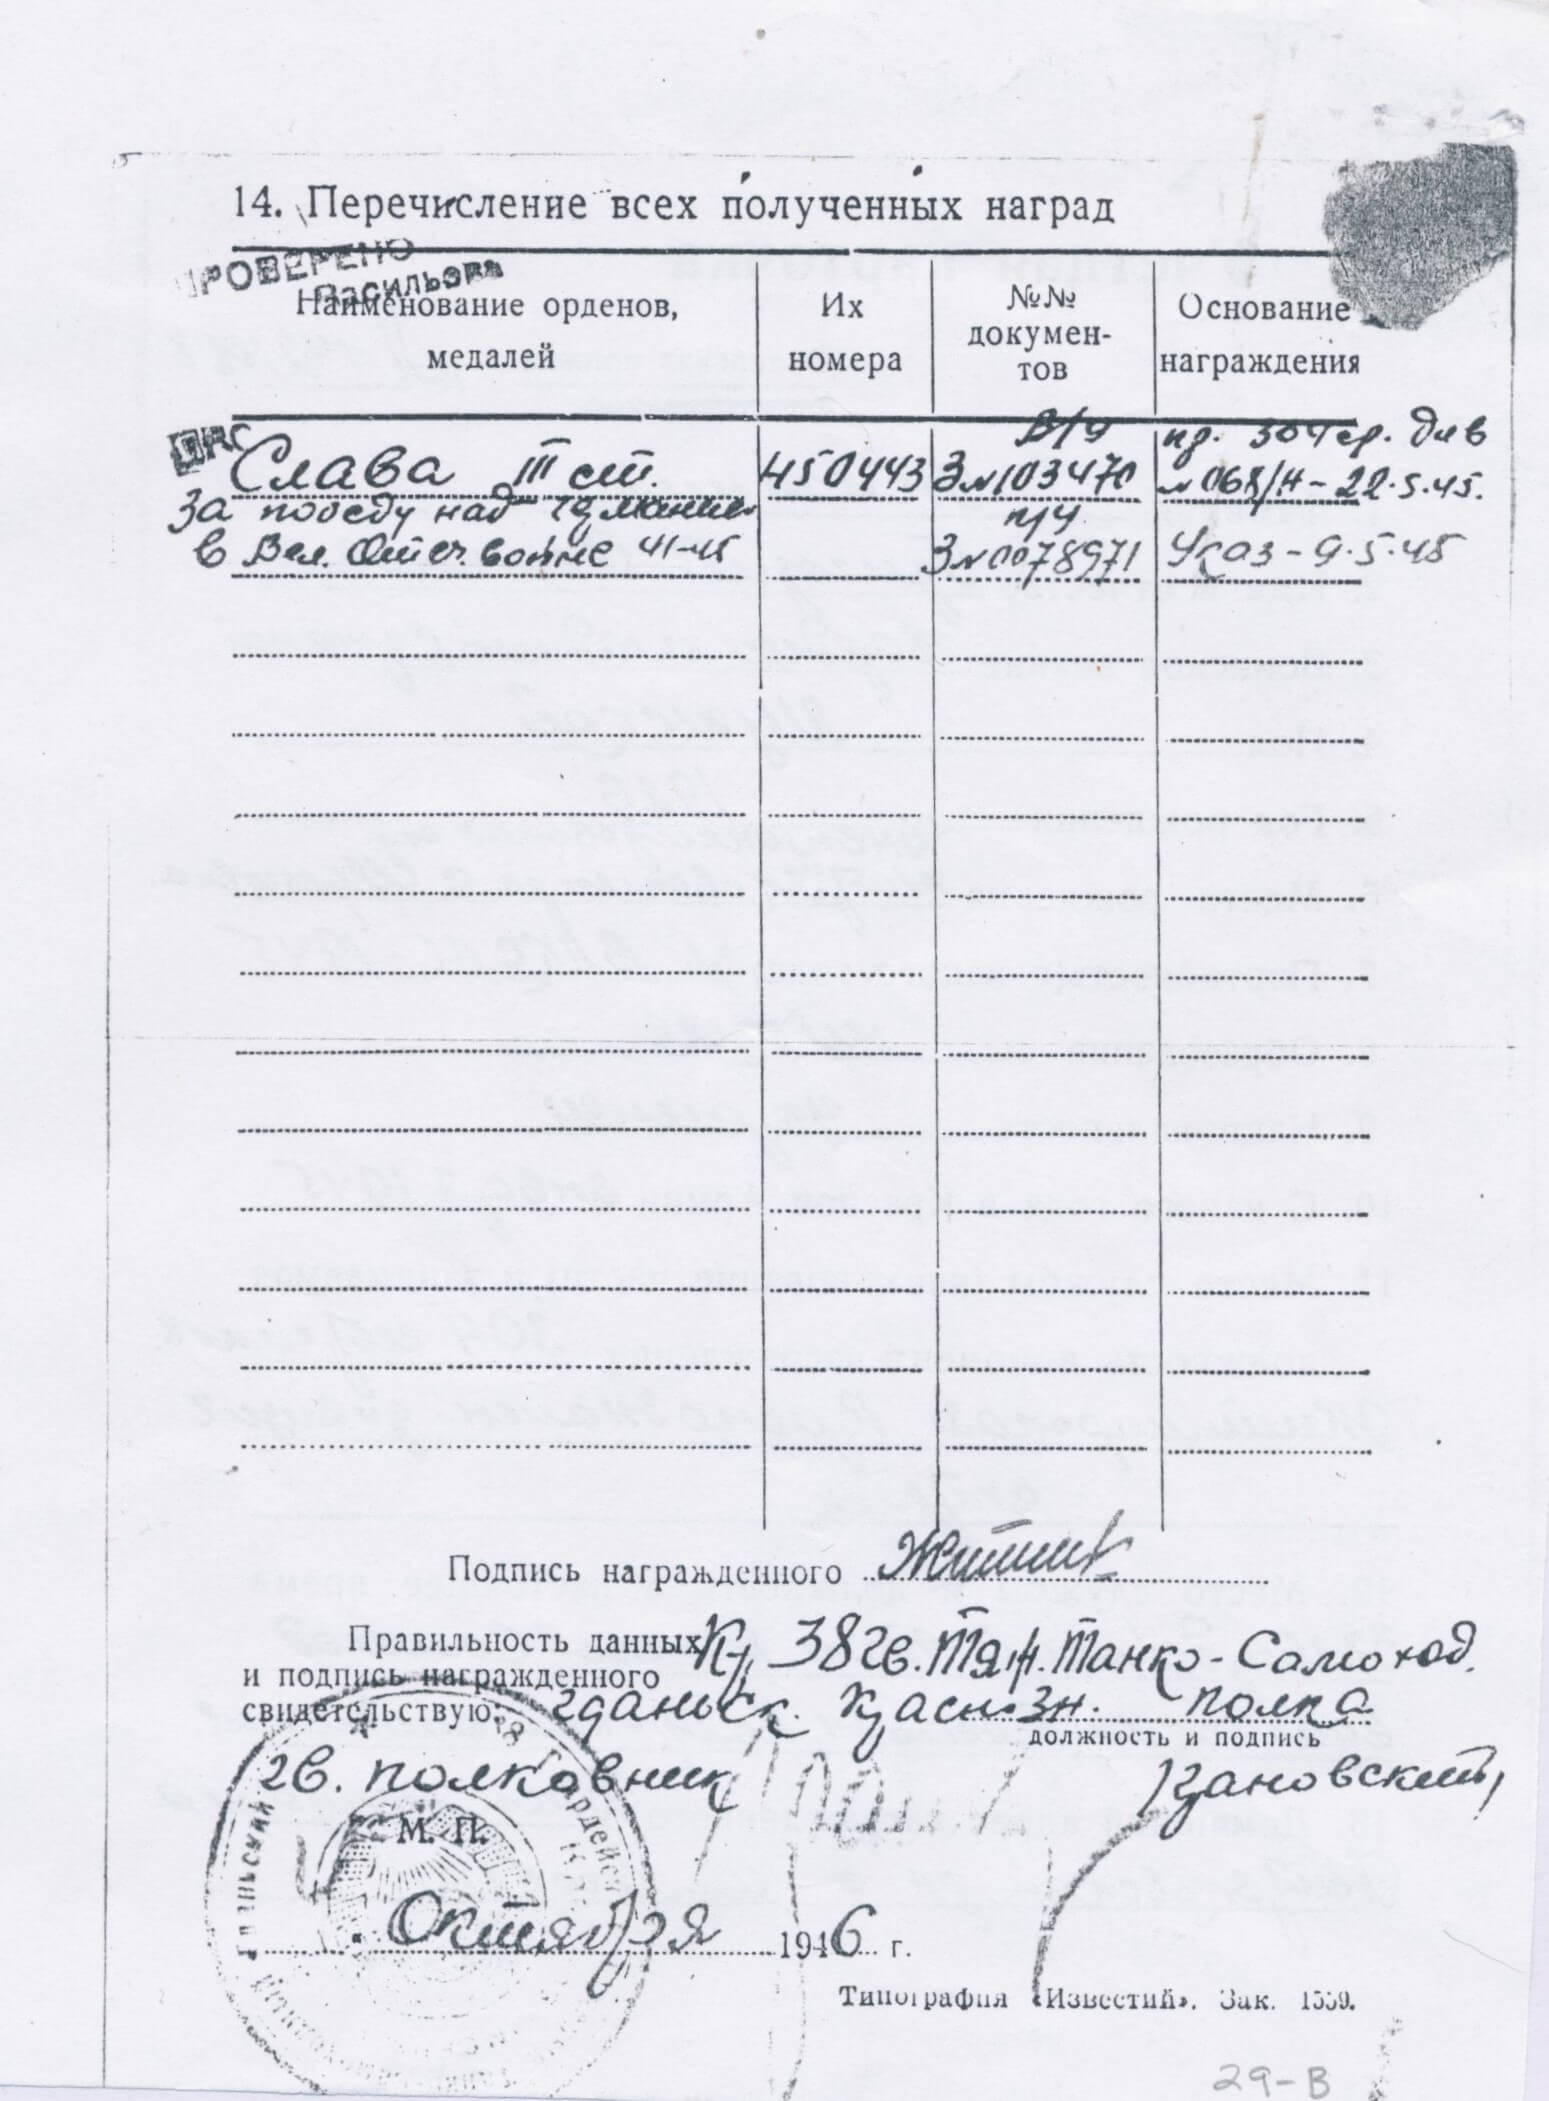 14. Перечисление всех полученных наград
ПРОВЕРЕНО
Васильева
Наименование орденов, медалей
Их номера
№№ докумен- тов
Основание награждения
В/ч
Слава III ст. 450443 З№103470
пр. 304 ср. див
№068/Н - 22.5.45.
За победу над Германией
в Вел. Отеч. войне 41-45
З№0078971 Указ - 9.5.45
Подпись награжденного Житник
Правильность данных Кр. 38 гв. Тяж. Танко-Самоход.
и подпись награжденного
свидетельствую: Гданьск. Красноз н. полка
должность и подпись
гв. полковник
М. П.
Октября 1946 г.
Типография «Известий». Зак. 1559.
29-В